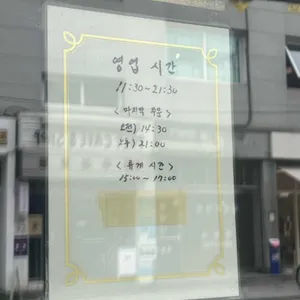 영업 시간
11:30~21:30
<마지막 주문>
오전) 14:30
오후) 21:00
<휴게 시간>
15:00 ~ 17:00